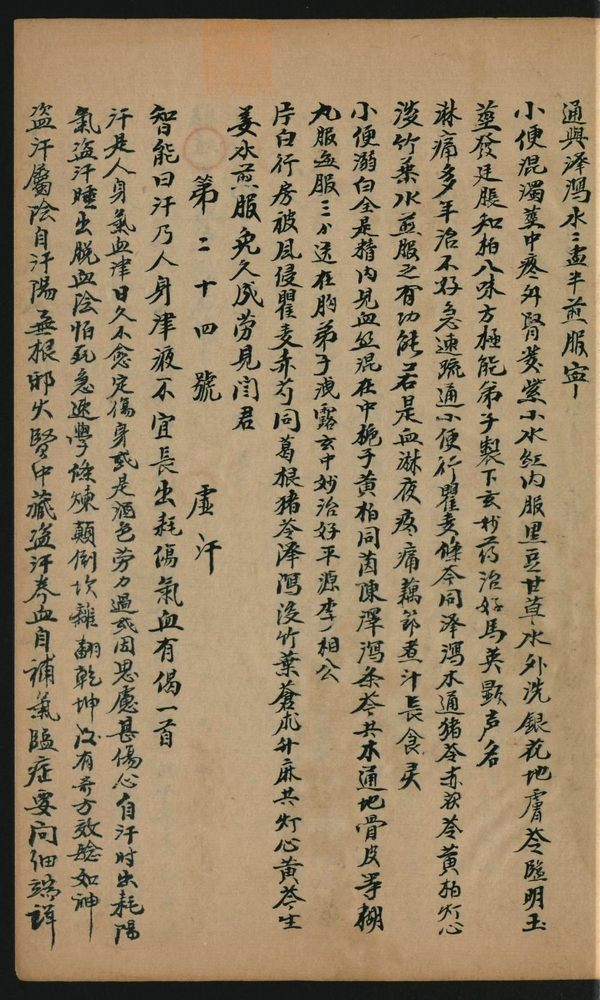 通與澤瀉水二盅半煎服寧
小便混濁莖中疼外腎黃紫小水紅内服黑豆甘草水外洗銀花地膚苓臨明玉
莖發廷脹知柏八味方極能弟子製下玄妙药治好馬英顯声名
淋痛多年治不好急速疏通小便行瞿麦條苓同澤瀉水通猪苓赤茯苓黄柏灯心
淡竹葉水煎服之有功能若是血淋夜疼痛藕節煮汁長食灵
小便溺白全是精内見血丝混在中梔子黄柏同茵陳澤瀉条苓共木通地骨皮等糊
丸服每服三分送在胸弟子洩露玄中妙治好平源李相公
片白行房被風侵瞿麦赤芍同葛根猪苓澤瀉淡竹葉蒼朮升麻共灯心黄苓生
姜水煎服免久成劳見閻君
第二十四號 虚汗
智能曰汗乃人身津液不宜長出耗傷氣血有偈一首
汗是人身氣血津日久不愈定傷身或是酒色劳力過或因思慮甚傷心自汗时出耗陽
氣盗汗睡出脱血陰怕死急速學修煉顛倒坎離翻乾坤没有奇方效驗如神
盗汗屬陰自汗陽無根邪火腎中藏盗汗养血自補氣臨症要向细端詳